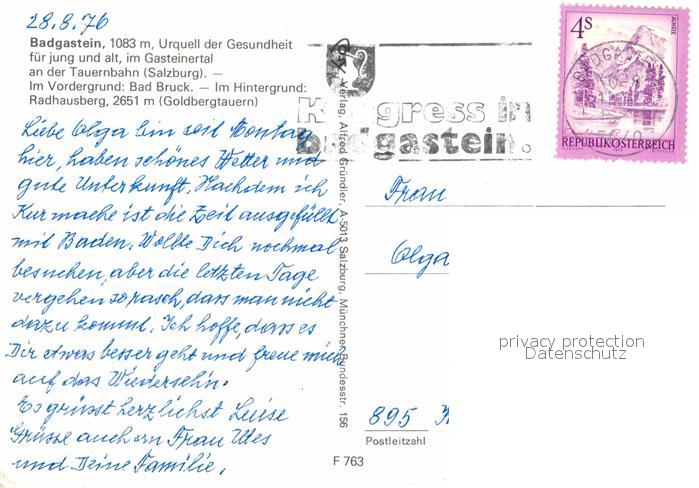 28.8.76
Badgastein, 1083 m, Urquell der Gesundheit
für jung und alt, im Gasteinertal
an der Tauernbahn (Salzburg). —
Im Vordergrund: Bad Bruck. — Im Hintergrund:
Radhausberg, 2651 m (Goldbergtauern)
Liebe Olga bin seit Montag
hier, haben schönes Wetter und
gute Unterkunft. Nachdem ich
Kur mache ist die Zeit ausgefüllt
mit Baden. Wollte Dich nochmal
besuchen, aber die letzten Tage
vergehen so rasch, dass man nicht
dazu kommt. Ich hoffe, dass es
Dir etwas besser geht und freue mich
auf das Wiedersehn.
Es grüsst herzlichst Luise
Grüsse auch an Frau
und Deine Familie.
Verlag Alfred Gründler, A-5013 Salzburg, Münchner Bundesstr. 156
F 763
Kongress in
badgastein.
4S
ALMSEE
REPUBLIK ÖSTERREICH
BADGASTEIN
Frau
Olga
895
Postleitzahl
privacy protection
Datenschutz